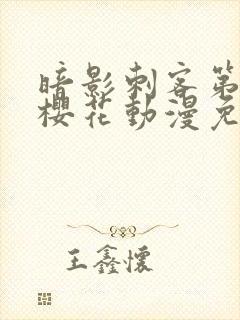 暗影刺客第
櫻花動漫免
王鑫懷